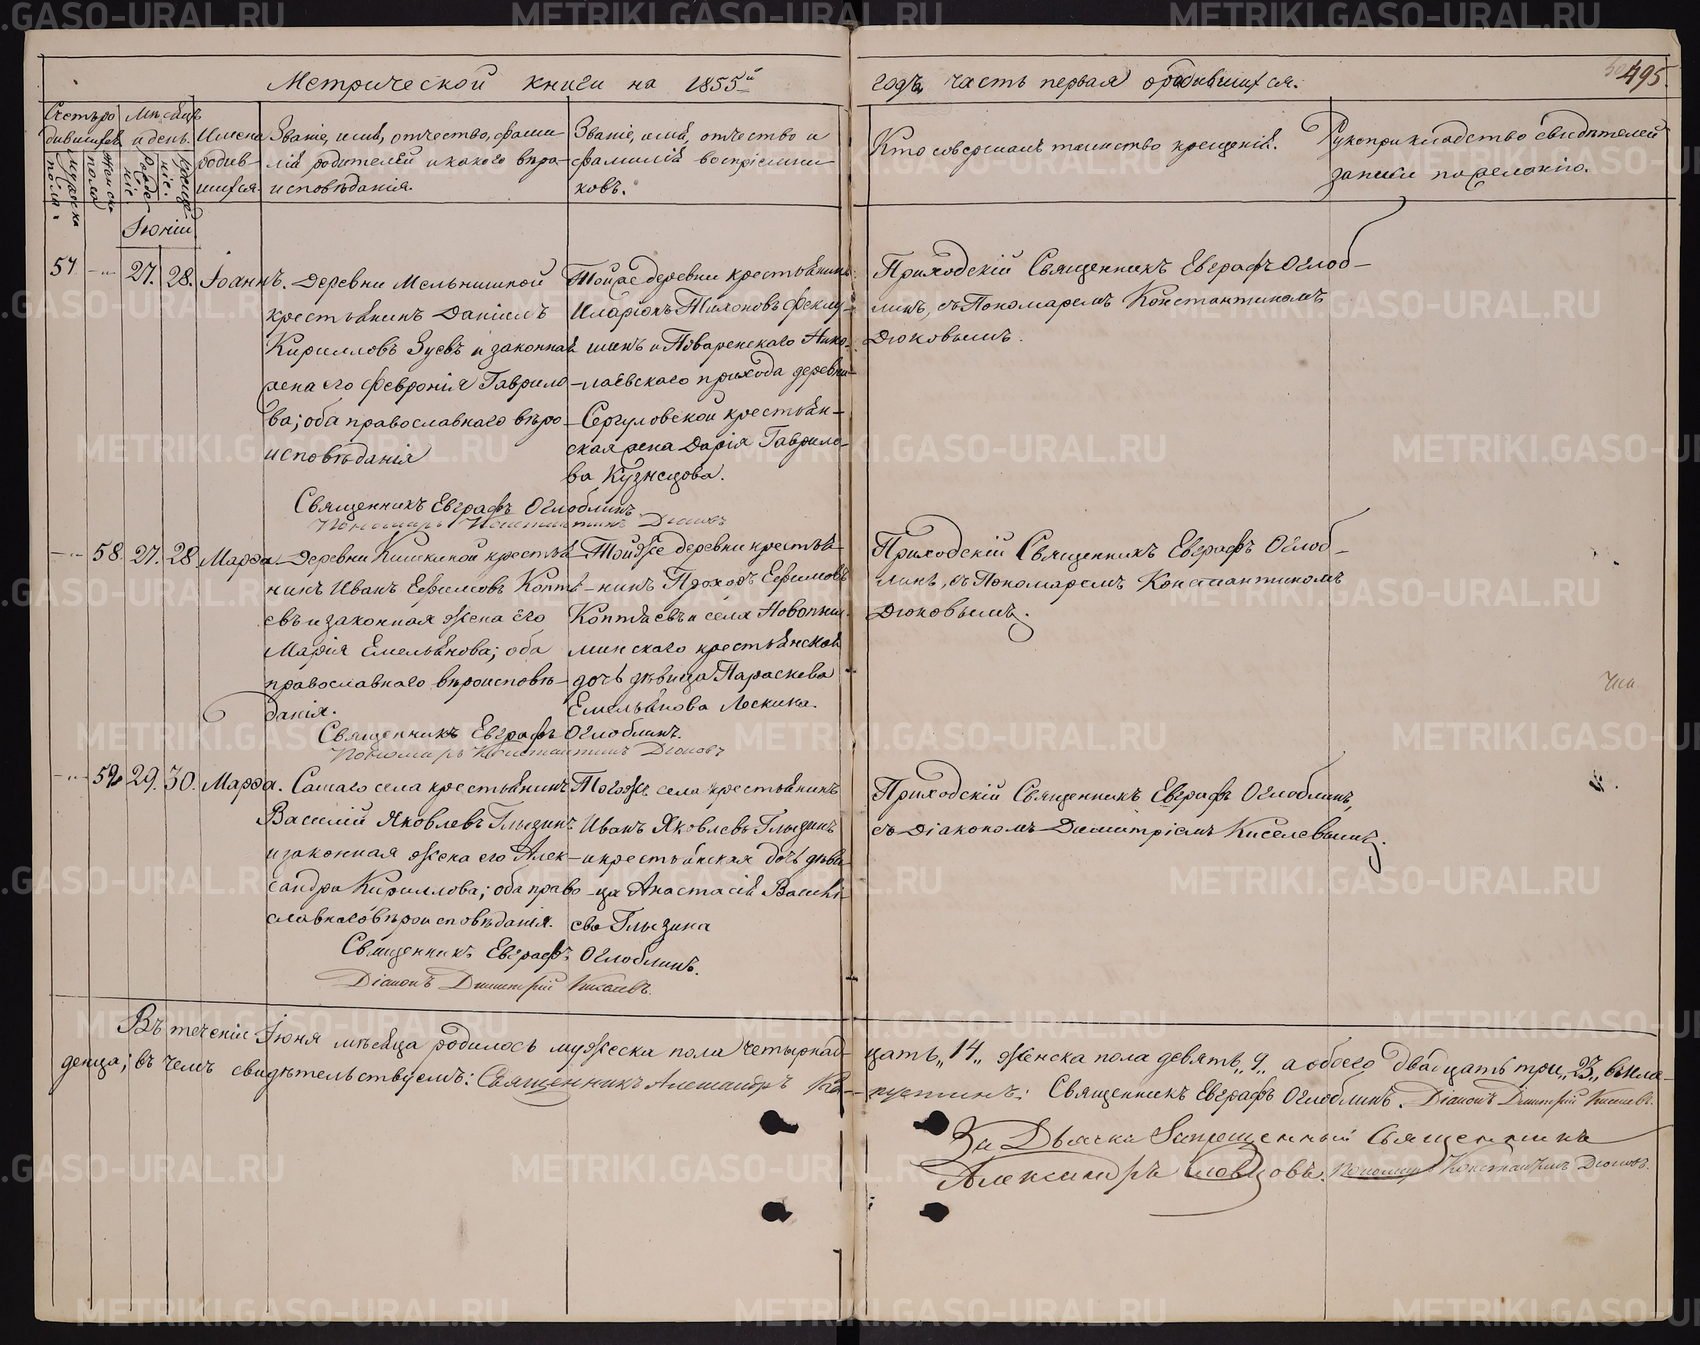 Метрической книги на 1855й годъ часть первая о родившихся.
495.
Счетъ родившихся
мужеска пола.
женска пола
Мѣсяцъ и день.
рожденіе.
крещеніе.
Имена родившихся.
Званіе, имя, отчество, фамилія родителей и какого вѣроисповѣданія.
Званіе, имя, отчество и фамилія воспріемниковъ.
Кто совершалъ таинство крещенія.
Рукоприкладство свидѣтелей записи по желанію.
Іюнія
57. 27. 28. Іоаннъ.
Деревни Мельнишной
крестьянинъ Даніилъ
Кирилловъ Зуевъ и законная
жена его Февронія Гаврило-
ва; оба православнаго вѣро-
исповѣданія
Тойже деревни крестьянинъ
Иларіонъ
и Поваренскаго Нико-
лаевскаго прихода деревни
Сергуловской крестьян-
ская жена Дарія Гаврило-
ва Кузнецова.
Приходскій Священникъ Евграфъ Оглоб-
линъ, съ Пономаремъ Константиномъ
Дюковымъ.
Священникъ Евграфъ Оглоблинъ
Пономарь Константинъ Дюковъ
58. 27. 28. Марѳа.
Деревни Кишкиной крестья-
нинъ Иванъ Ефимовъ Коптя-
евъ и законная жена его
Марія Емельянова; оба
православнаго вѣроисповѣ-
данія.
Тойже деревни крестья-
нинъ Прохоръ Ефимовъ
Коптяевъ и села Новопыш-
минскаго крестьянская
дочь дѣвица Параскева
Емельянова Лескина.
Приходскій Священникъ Евграфъ Оглоб-
линъ, съ Пономаремъ Константиномъ
Дюковымъ.
Священникъ Евграфъ Оглоблинъ.
Пономарь Константинъ Дюковъ
59. 29. 30. Марѳа.
Самаго села крестьянинъ
Василій Яковлевъ Глызинъ
и законная жена его Алек-
сандра Кириллова; оба право-
славнаго вѣроисповѣданія.
Тогоже села крестьянинъ
Иванъ Яковлевъ Глызинъ
и крестьянская дочь дѣви-
ца Анастасія Василь-
ева Глызина
Приходскій Священникъ Евграфъ Оглоблинъ,
съ Діакономъ Димитріемъ Киселевымъ.
Священникъ Евграфъ Оглоблинъ.
Діаконъ Димитрій Киселевъ.
Въ теченіи Іюня мѣсяца родилось мужеска пола четырнад-цать „14„ женска пола девять „9„ а обоего двадцать три „23„ вкла-
денца; въ чемъ свидѣтельствуемъ: Священникъ Александръ Священникъ Евграфъ Оглоблинъ. Діаконъ Димитрій Киселевъ.
За Дьячка Запрещенный Священникъ
Александръ Словцовъ. Пономарь Константинъ Дюковъ.
METRIKI.GASO-URAL.RU